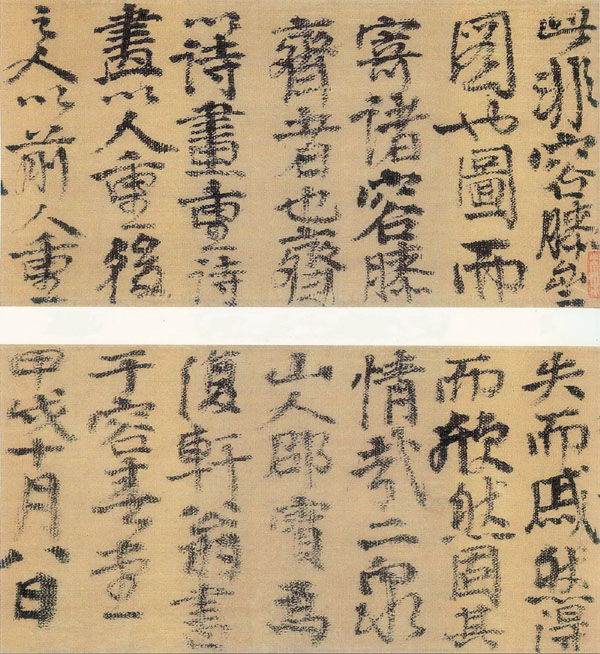 此非容膝亝
圖也圖而
寄諸容膝
齋者也齋
以詩畫重詩
畫以人重後
之人以前人重
失而戚然得
而欣然固其
情哉二泉
山人邵寶為
復軒翁書
于容春堂
甲戌十月八日